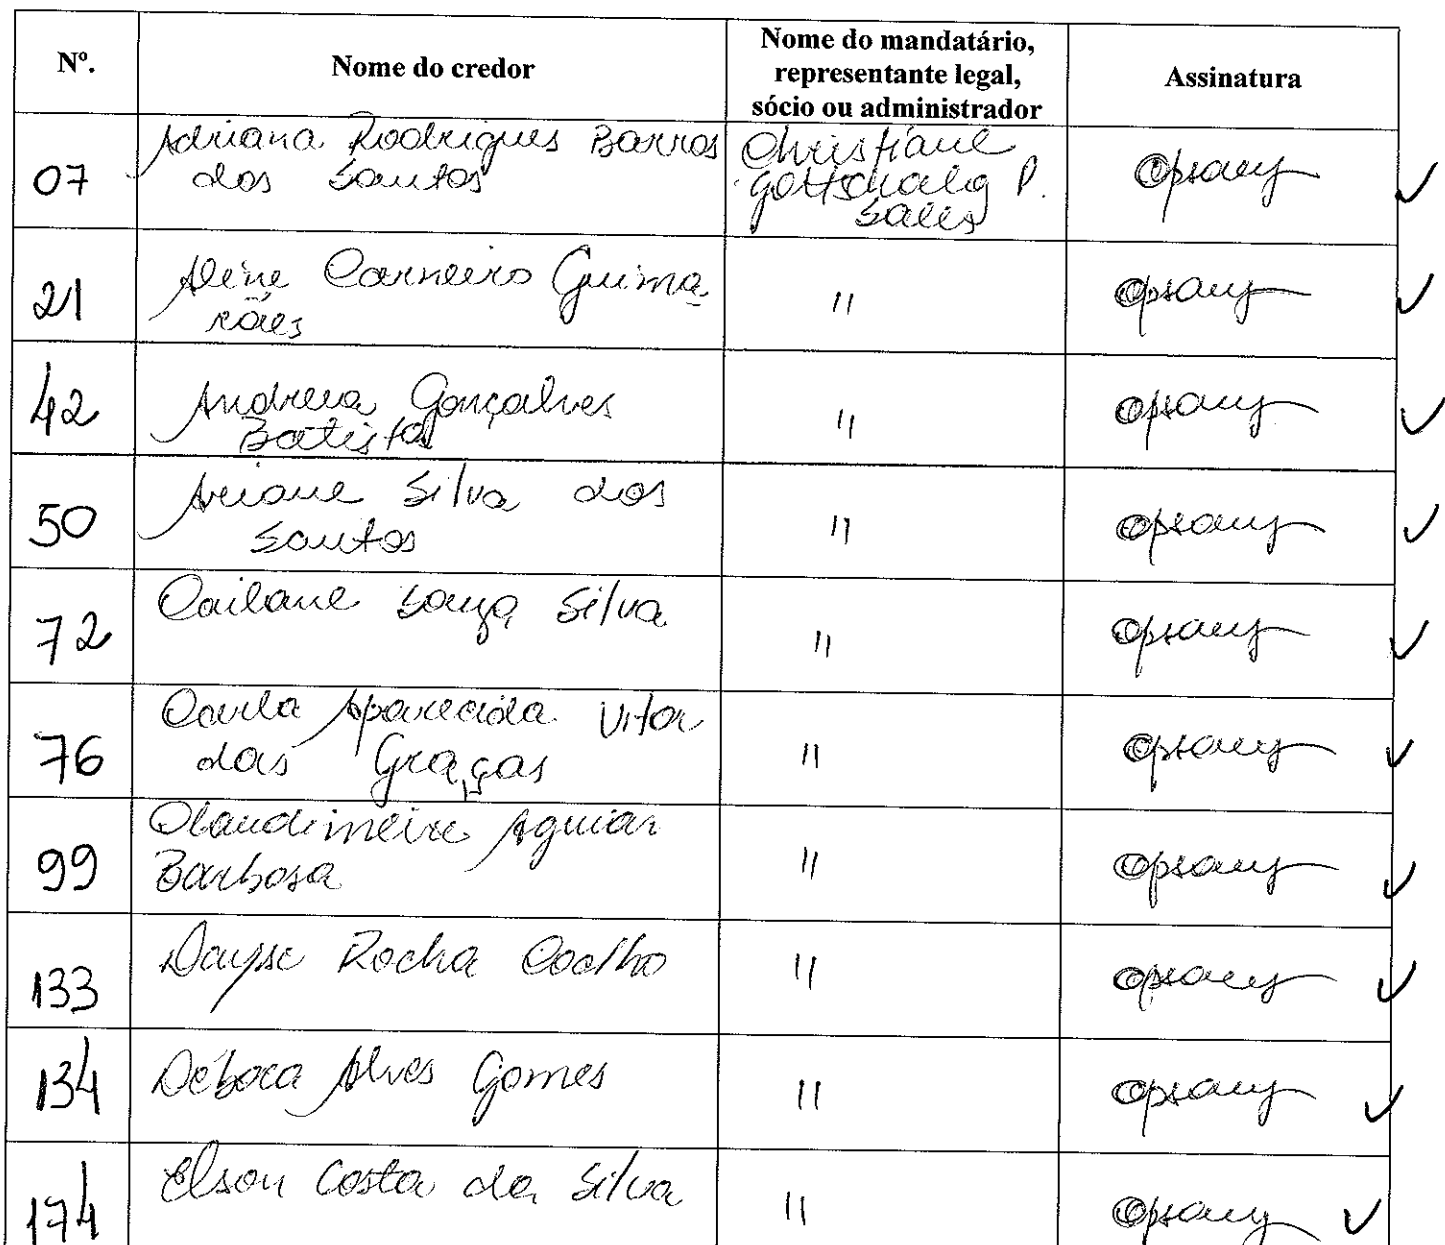 Nº.
Nome do credor
Nome do mandatário,
representante legal,
sócio ou administrador
Assinatura
07
Adriana Rodrigues Barros
dos Santos
Christiane
Gottschalg P.
Sales
21
Aline Carneiro Guima
rães
"
42
Andreia Gonçalves
Batista
"
50
Ariane Silva dos
Santos
"
72
Cailane Souza Silva
"
76
Carla Aparecida Vitor
das Graças
"
99
Claudimeire Aguiar
Barbosa
"
133
Dayse Rocha Coelho
"
134
Débora Alves Gomes
"
174
Elson Costa da Silva
"